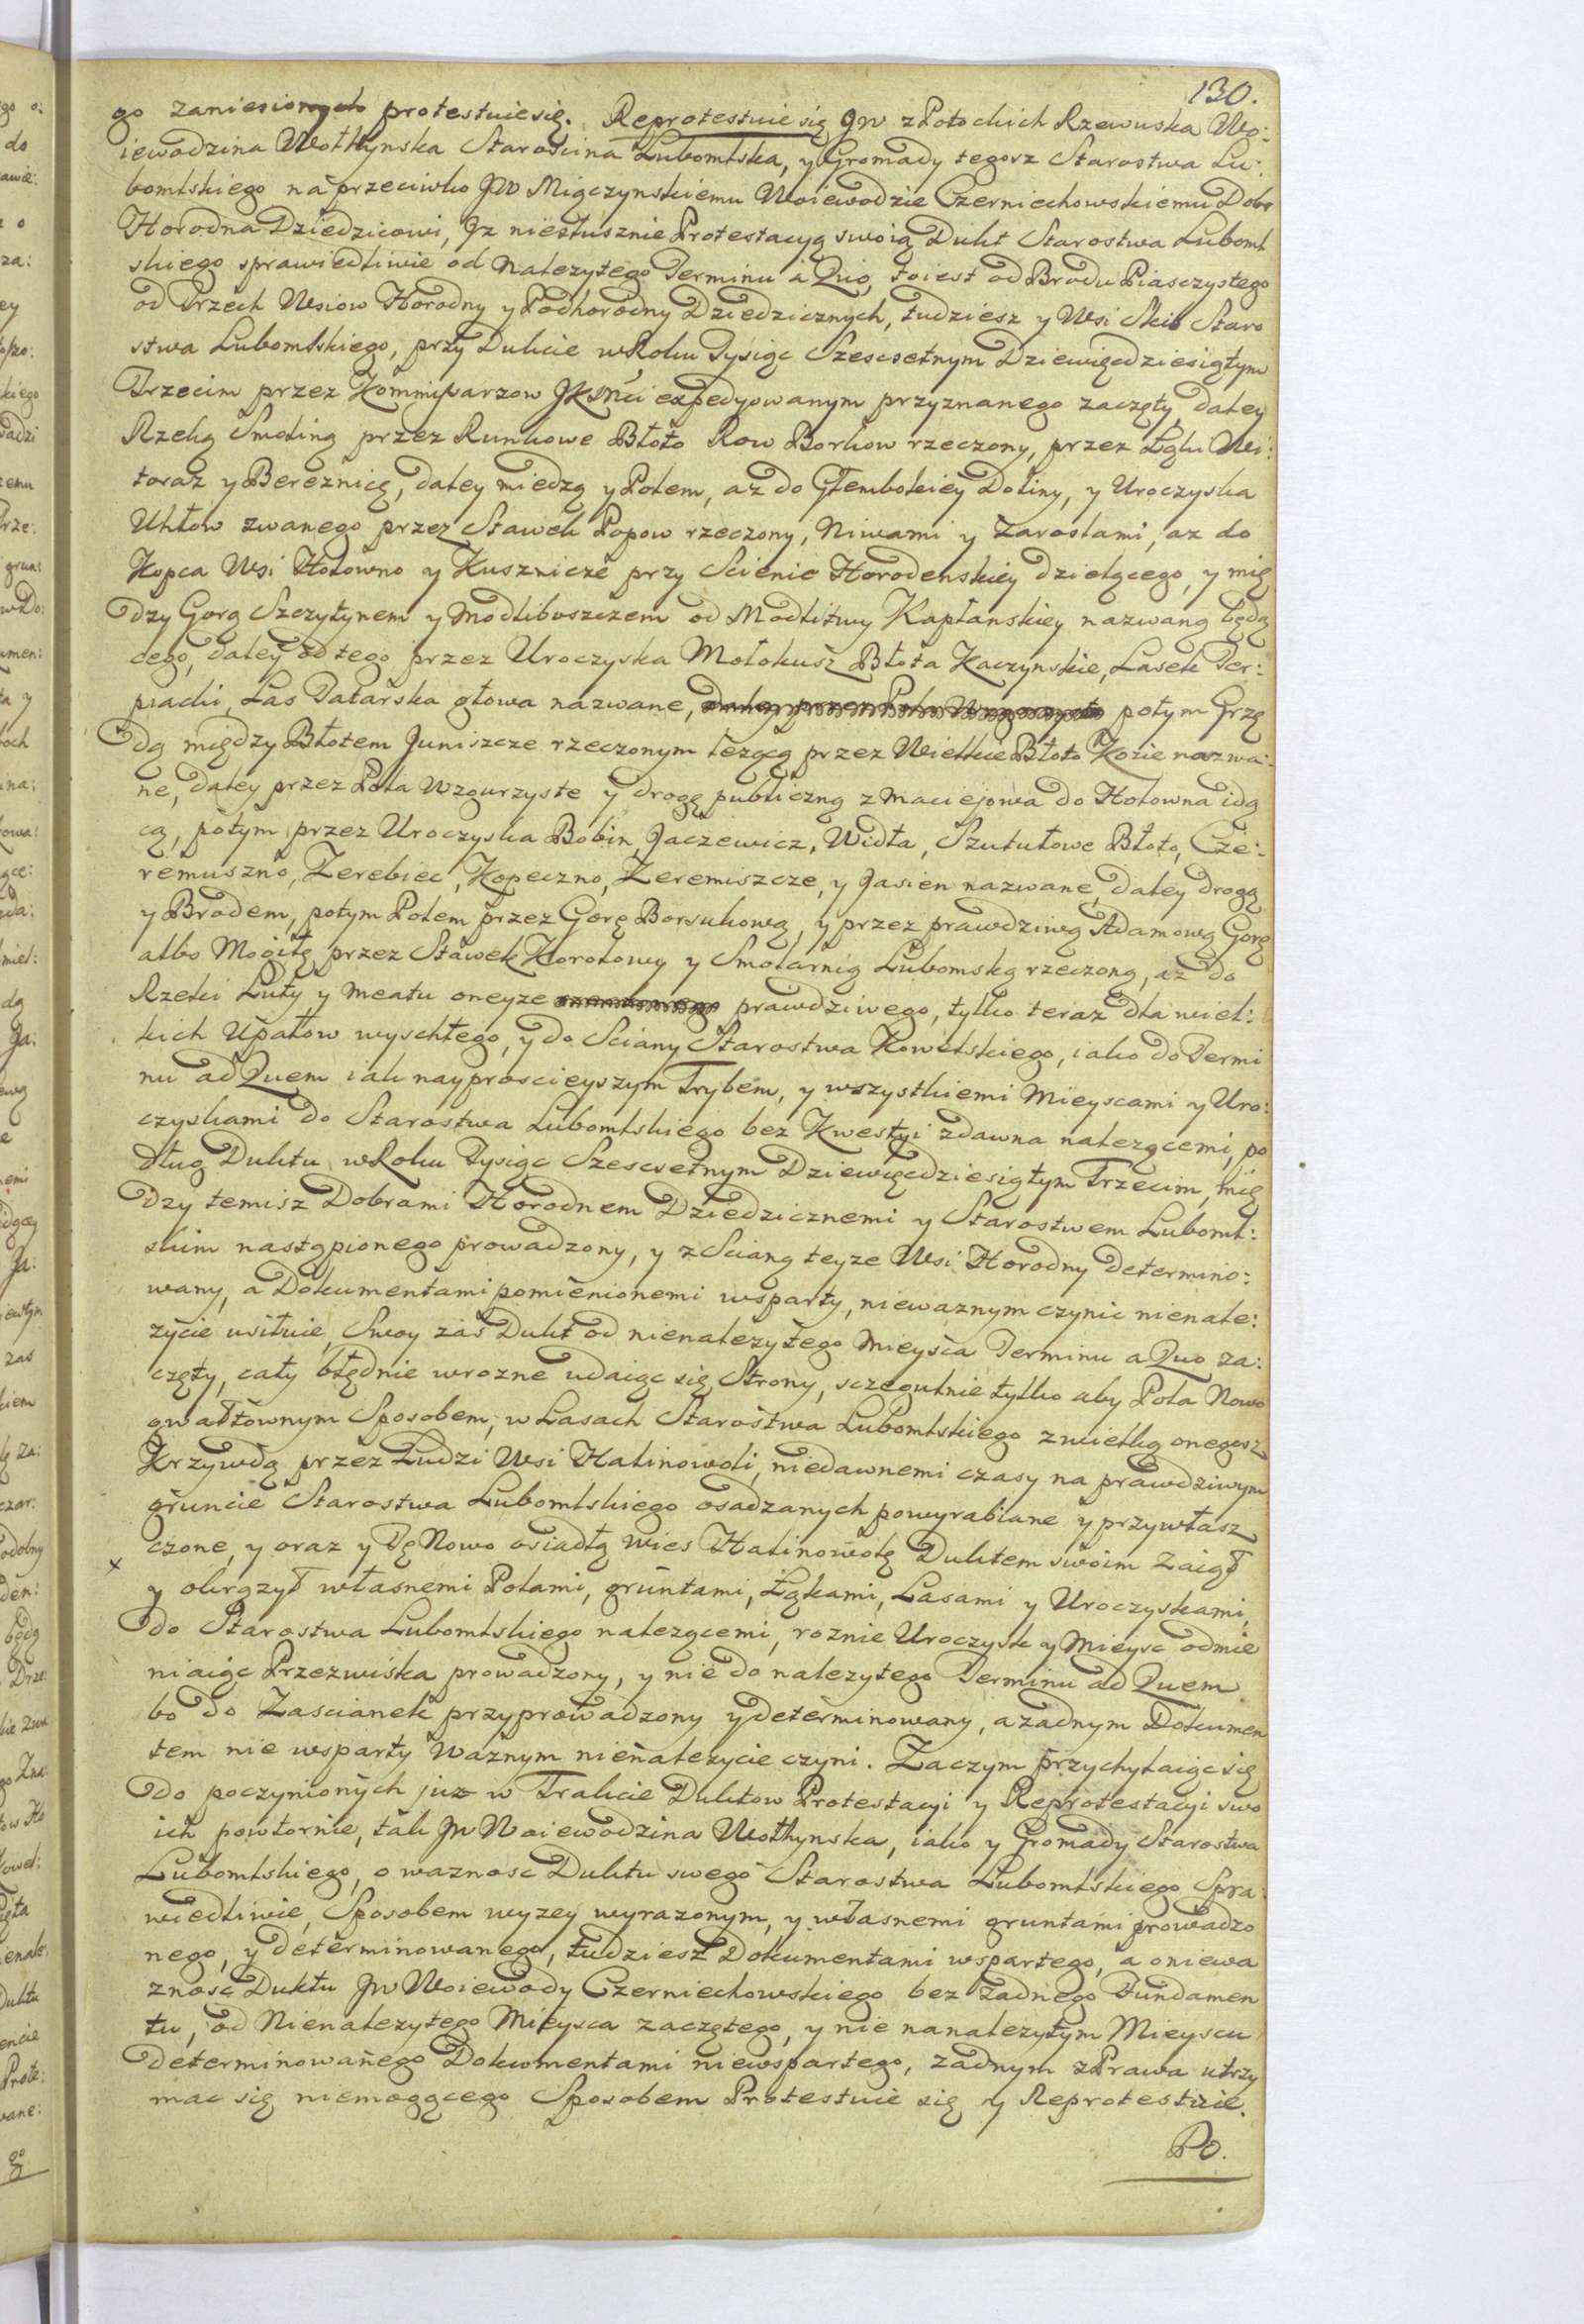 130.
go zaniesionych protestuie się. Reprotestuie się JW z Potockich Rzewuska Wo:
iewodzina Wołhynska Starościna Lubomlska, y Gromady tegosz Starostwa Lu:
bomlskiego naprzeciwko JW Miączynskiemu Woiewodzie Czerniechowskiemu Dobr
Horodna Dziedzicowi, Jz niesłusznie Protestacyą swoią Dukt Starostwa Luboml
skiego sprawiedliwie od Nalezytego Terminu a Quo, toiest od Brodu Piasczystego
od Trzech Wsiow Horodny y Podhorodny Dziedzicznych, tudziesz y Wsi Skib Staro
stwa Lubomlskiego, przy Dukcie w Roku Tysiąc Szescsetnym Dziewięcdziesiątym
Trzecim przez Kommissarzow JKMci expedyowanym przyznanego zaczęty, daley
Rzeką Smoling przez Runkowe Błoto Row Borkow rzeczony, przez Łąku Wi:
toraz y Bereznicę, daley miedzą y Polem, az do Głembokiey Doliny, y Uroczyska
Uhłow zwanego przez Stawek Popow rzeczony, Niwami y Zaroslami, az do
Kopca Wsi Hołowno y Kusznicze przy Scienie Horodenskiey dzielącego, y mię
dzy Gorą Szczytynem y Modliboszczem od Modlitwy Kapłanskiey nazwaną będą
cego, daley od tego przez Uroczyska Mołokusz Błota Kaczynskie, Lasek Ter:
piachi, Las Tatarska głowa nazwane, potym Grzę
dą między Błotem Juniszcze rzeczonym lezącą przez Wielkie Błoto Kozie nazwa:
ne, daley przez Pola Wzgurzyste y drogę publiczną z Maciejowa do Hołowna idą
cą, potym przez Uroczyska Bobin, Jaczewicz, Widła, Szutułowe Błoto, Cze:
remuszno, Zerebiec, Kopeczno, Zeremiszcze, y Jasien nazwane, daley drogą
y Brodem, potym Polem przez Gorę Borsukową, y przez prawdziwą Adamową Gorę
albo Mogiłę przez Stawek Korolowy y Smolarnią Lubomską rzeczoną, az do
Rzeki Łuty y Meatu oneyze prawdziwego, tylko teraz dla wiel:
kich Upałow wyschłego, y do Sciany Starostwa Kowelskiego, iako do Termi
nu ad Quem iak nayprosciejszym Trybem, y wszystkiemi Mieyscami y Uro:
czyskami do Starostwa Lubomlskiego bez Kwestyi zdawna nalezącemi, po
dług Duktu w Roku Tysiąc Szescsetnym Dziewięcdziesiątym Trzecim, mię
dzy temisz Dobrami Horodnem Dziedzicznemi y Starostwem Luboml:
skim nastąpionego prowadzony, y z Scianą teyze Wsi Horodny determino:
wany, a Dokumentami pomienionemi wsparty, niewaznym czynic nienale:
zycie usiłuie, Swoy zas Dukt od nienalezytego Mieysca Terminu a Quo za:
częty, cały błędnie w rozne udaiąc się Strony, sczegulnie tylko aby Pola Nowo
gwałtownym Sposobem, w Lasach Starostwa Lubomlskiego z wielką onegosz
Krzywdą przez Ludzi Wsi Halinowoli, niedawnemi czasy na prawdziwym
gruncie Starostwa Lubomlskiego osadzanych powyrabiane y przywłasz
czone, y oraz y Tę Nowo osiadłą Wies Halinowolę Duktem swoim zaiął
x
y okrązył własnemi Polami, gruntami, Łąkami, Lasami y Uroczyskami,
do Starostwa Lubomlskiego nalezącemi, roznie Uroczysk y Mieysc odmie
niaiąc Przezwiska prowadzony, y nie do nalezytego Terminu ad Quem
bo do Zascianek przyprowadzony y determinowany, a zadnym Dokumen
tem nie wsparty Waznym nienalezycie czyni. Zaczym przychylaiąc się
do poczynionych juz w Trakcie Duktow Protestacyi y Reprotestacyi swo
ich powtornie, tak JW Woiewodzina Wołhynska, iako y Gromady Starostwa
Lubomlskiego, o waznosc Duktu swego Starostwa Lubomlskiego Spra:
wiedliwie, Sposobem wyzey wyrazonym, y własnemi gruntami prowadzo
nego, y determinowanego, tudziesz Dokumentami wspartego, a o niewa
znosc Duktu JW Woiewody Czerniechowskiego bez zadnego Fundamen
tu, od Nienalezytego Mieysca zaczętego, y nie na nalezytym Mieyscu
determinowanego Dokumentami niewspartego, zadnym z Prawa utrzy
mac się niemogącego Sposobem Protestuie się y Reprotestuie.
Po.